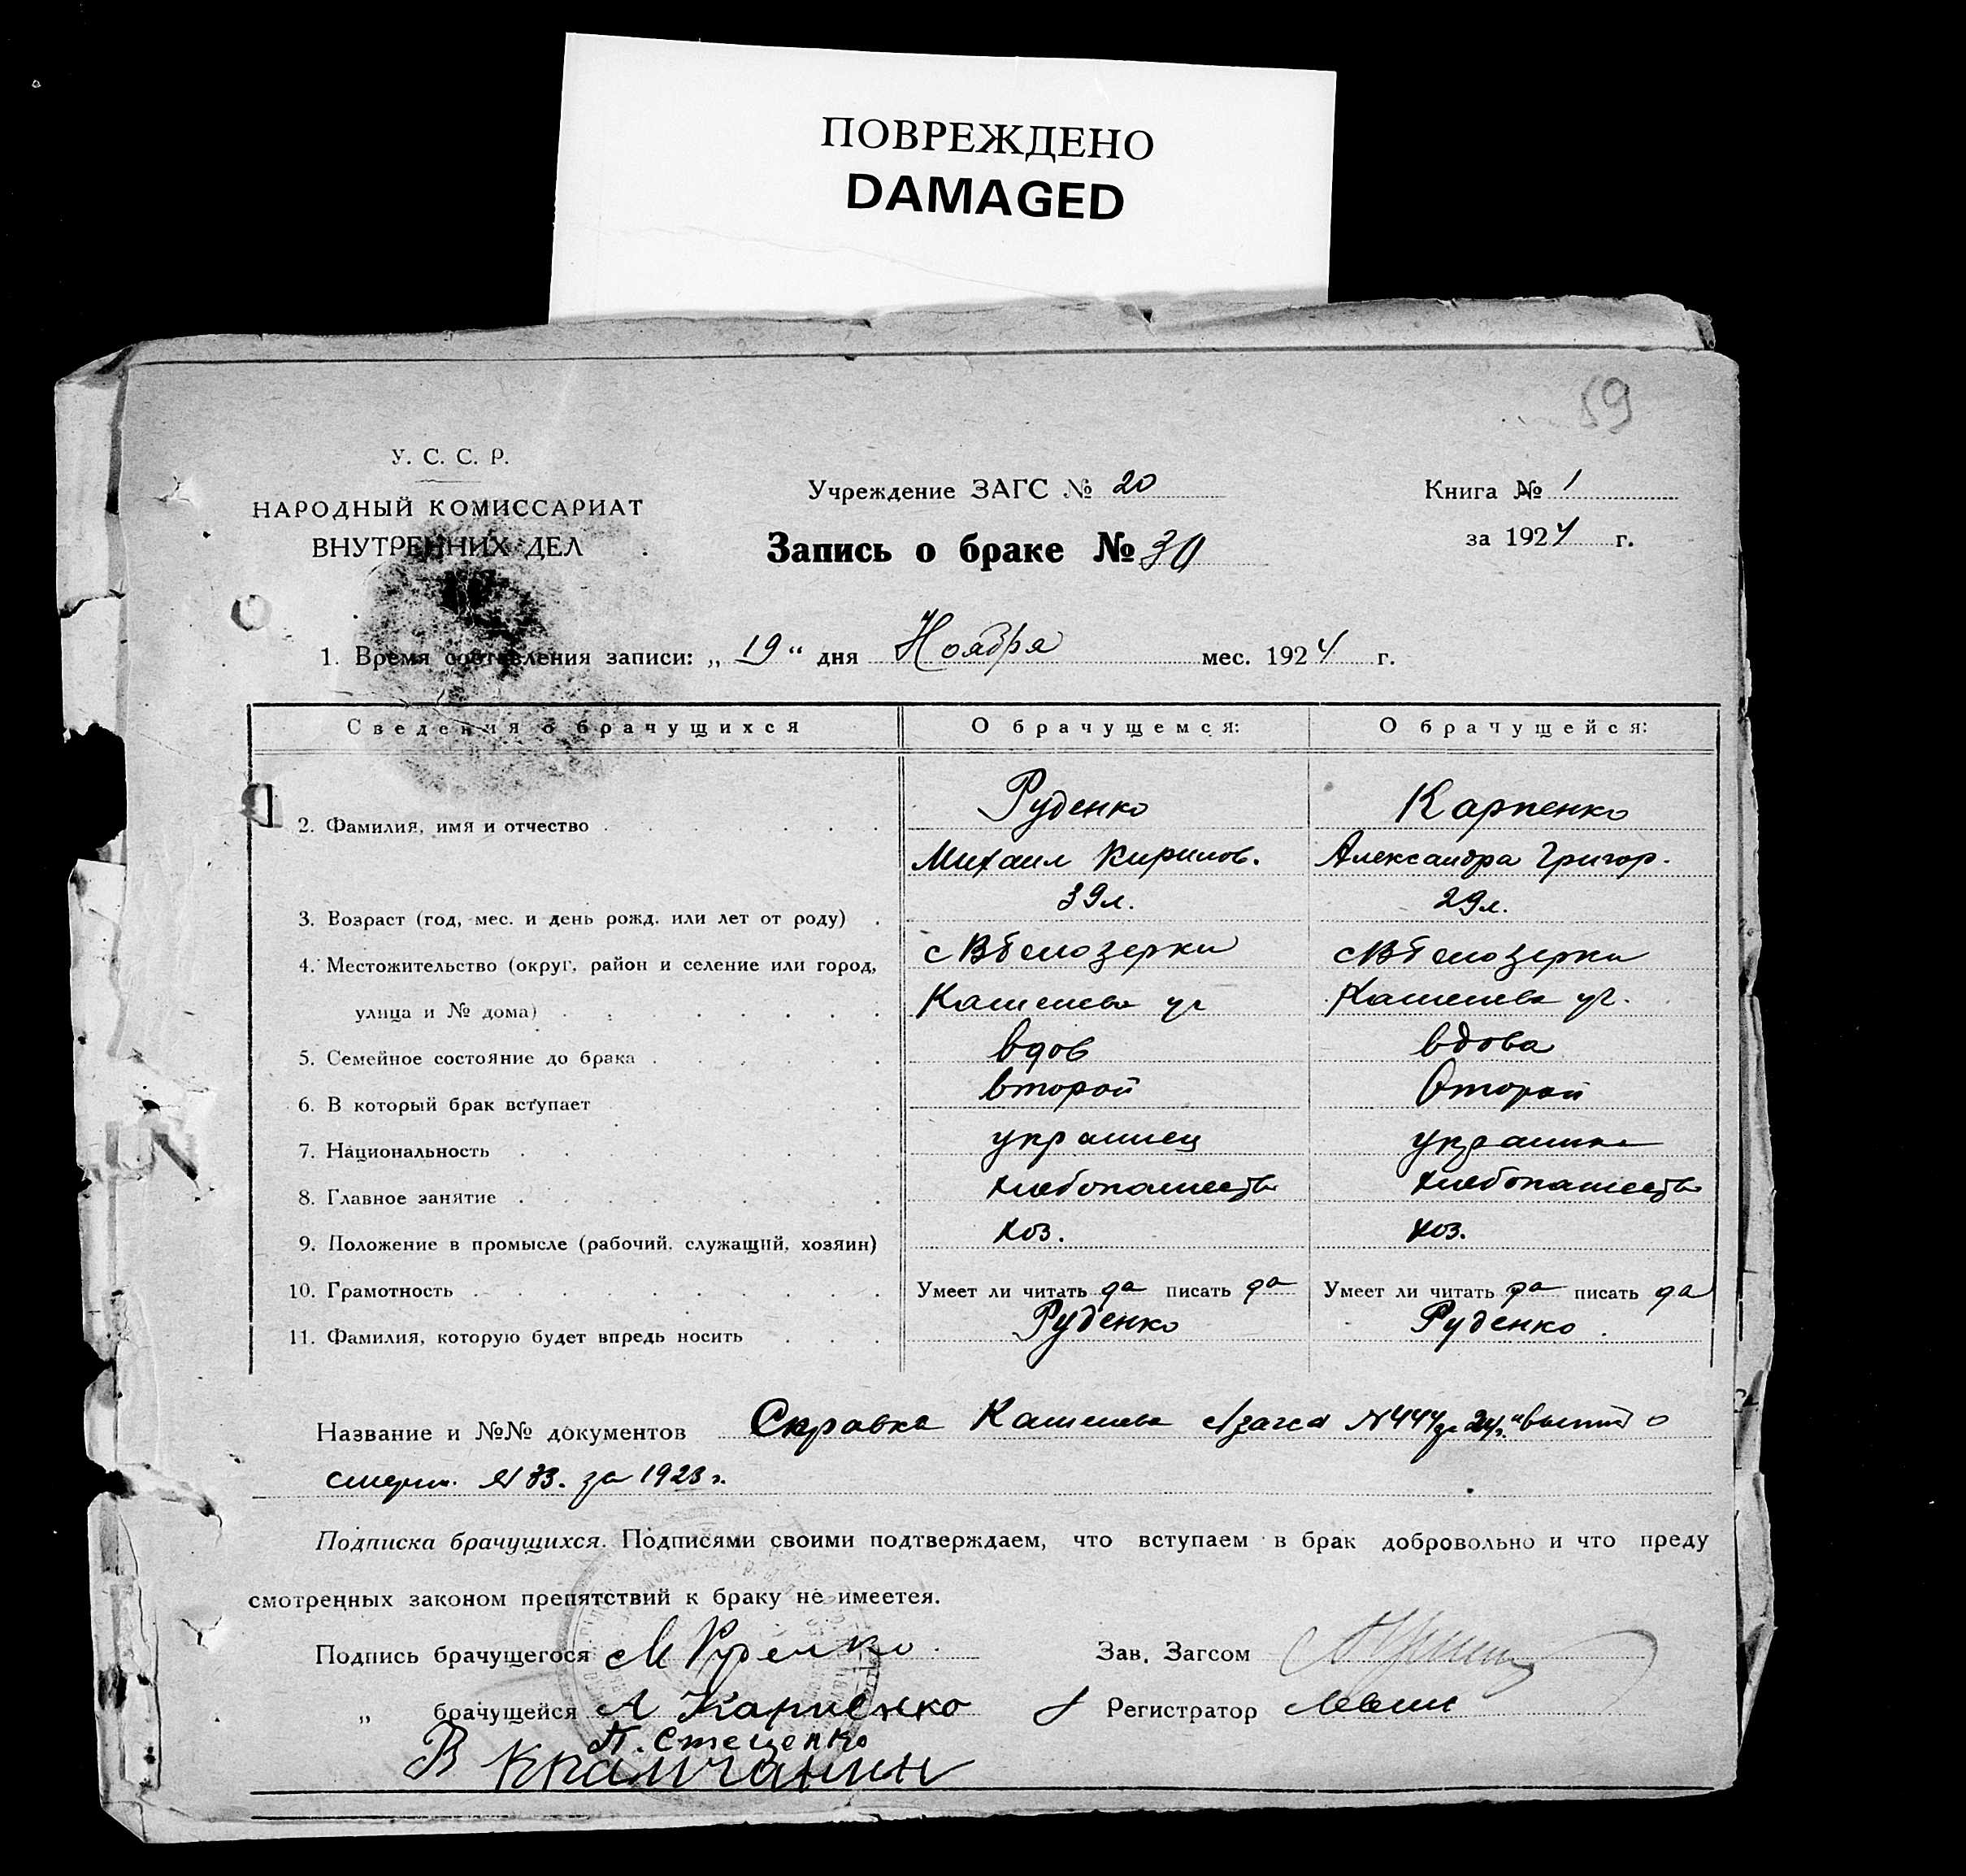 ПОВРЕЖДЕНО
DAMAGED
59
У. С. С. Р.
НАРОДНЫЙ КОМИССАРИАТ
ВНУТРЕННИХ ДЕЛ
Учреждение ЗАГС № 20
Запись о браке № 30
Книга № 1
за 1924 г.
1. Время составления записи: „ 19 “ дня Ноября мес. 1924 г.
Сведения о брачущихся О брачущемся: О брачущейся:
Руденко Карпенко
2. Фамилия, имя и отчество
Михаил Кирилов. Александра Григор.
39 л. 29 л.
3. Возраст (год, мес. и день рожд. или лет от роду)
с ВБелозерки с ВБелозерки
4. Местожительство (округ, район и селение или город,
улица и № дома)
вдов вдова
5. Семейное состояние до брака
второй второй
6. В который брак вступает
украинец украинка
7. Национальность
хлебопашество хлебопашество
8. Главное занятие
хоз. хоз.
9. Положение в промысле (рабочий, служащий, хозяин)
10. Грамотность Умеет ли читать да писать да Умеет ли читать да писать да
Руденко Руденко
11. Фамилия, которую будет впредь носить
Название и №№ документов Справка №444 о
№ 33. за 1923 г.
Подписка брачущихся. Подписями своими подтверждаем, что вступаем в брак добровольно и что преду
смотренных законом препятствий к браку не имеется.
Подпись брачущегося М Руденко Зав. Загсом
„ брачущейся А Карпенко Регистратор
П. Стеценко
В